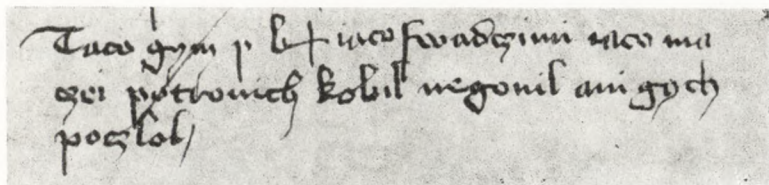 Taco gym p b + iaco swadczimi iaco ma
czei potrouich kobil negonil ani gych
poczlol